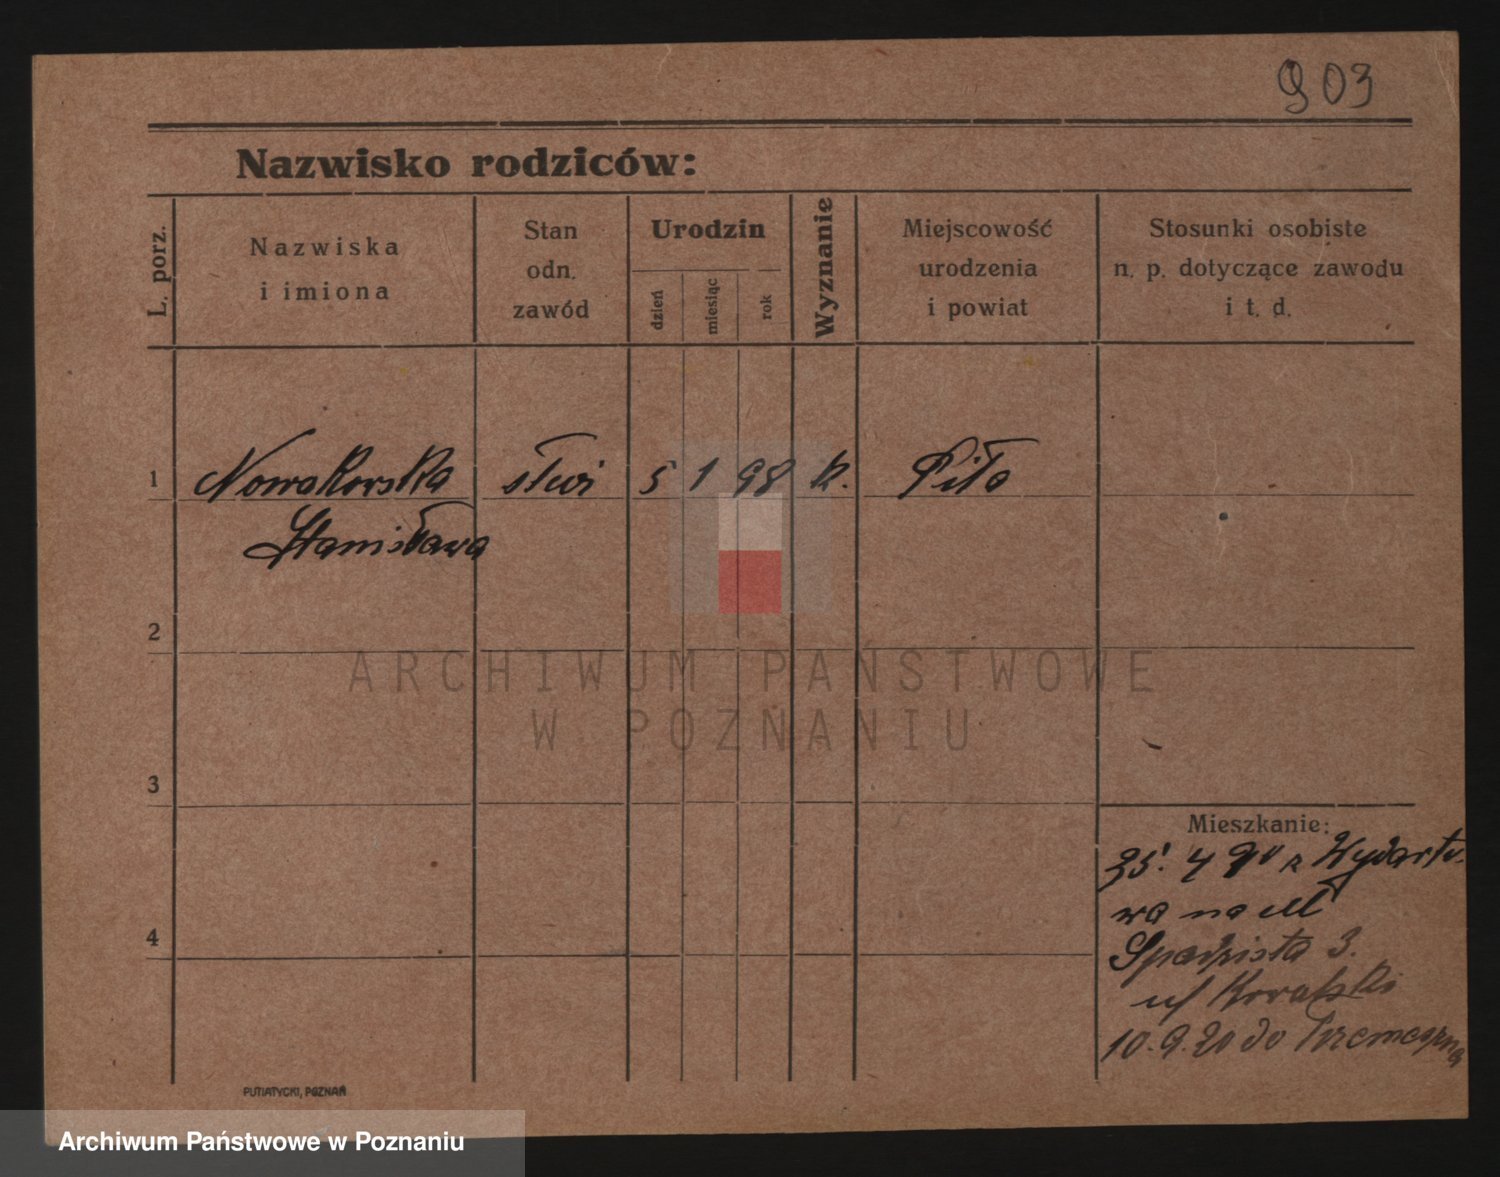 903
Nazwisko rodziców:
L. porz.
Nazwiska
i imiona
Stan
odn.
zawód
Urodzin
dzień
miesiąc
rok
Wyznanie
Miejscowość
urodzenia
i powiat
Stosunki osobiste
n. p. dotyczące zawodu
i t. d.
1 Nowakowska służ 5 1 98 k. Piła
Stanisława
2
ARCHIWUM PAŃSTWOWE
W POZNANIU
3
Mieszkanie:
25. 4 20 z Wydarto-
wa na ul
3.
4
10.9.20 do
PUTIATYCKI, POZNAŃ
Archiwum Państwowe w Poznaniu